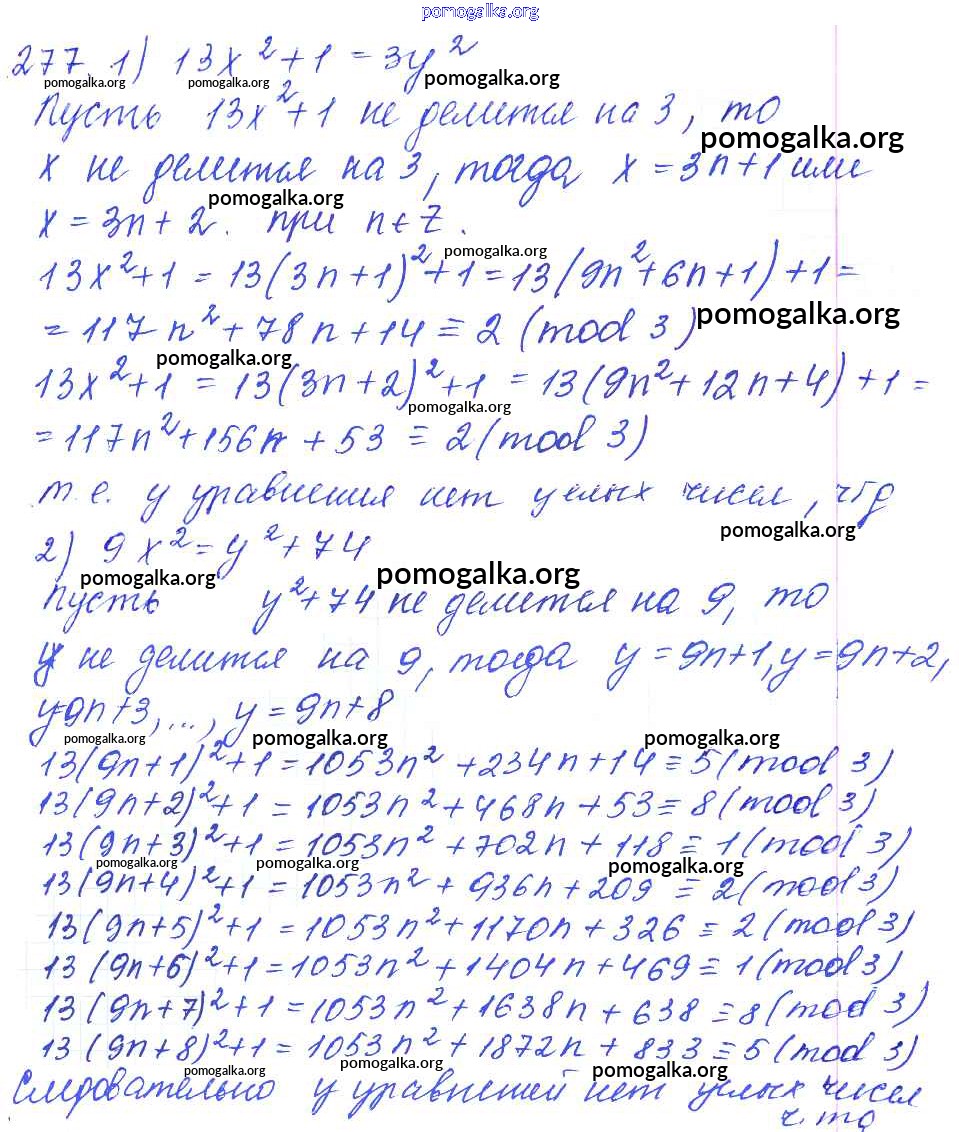 pomogalka.org
277. 1) 13x² + 1 = 3y²
pomogalka.org pomogalka.org pomogalka.org
Пусть 13x² + 1 не делится на 3, то
pomogalka.org
x не делится на 3, тогда x = 3n + 1 или
pomogalka.org
x = 3n + 2. при n ∈ Z.
pomogalka.org
13x² + 1 = 13(3n + 1)² + 1 = 13(9n² + 6n + 1) + 1 =
= 117n² + 78n + 14 ≡ 2 (mod 3)
pomogalka.org
pomogalka.org
13x² + 1 = 13(3n + 2)² + 1 = 13(9n² + 12n + 4) + 1 =
pomogalka.org
= 117n² + 156n + 53 ≡ 2 (mod 3)
т.е. у уравнения нет целых чисел, чтд
pomogalka.org
2) 9x² = y² + 74
pomogalka.org pomogalka.org
Пусть y² + 74 не делится на 9, то
y не делится на 9, тогда y = 9n+1, y = 9n+2,
y=9n+3, ..., y = 9n+8
pomogalka.org pomogalka.org pomogalka.org
13(9n+1)² + 1 = 1053n² + 234n + 14 ≡ 5 (mod 3)
13(9n+2)² + 1 = 1053n² + 468n + 53 ≡ 8 (mod 3)
13(9n+3)² + 1 = 1053n² + 702n + 118 ≡ 1 (mod 3)
pomogalka.org pomogalka.org pomogalka.org
13(9n+4)² + 1 = 1053n² + 936n + 209 ≡ 2 (mod 3)
13(9n+5)² + 1 = 1053n² + 1170n + 326 ≡ 2 (mod 3)
13(9n+6)² + 1 = 1053n² + 1404n + 469 ≡ 1 (mod 3)
13(9n+7)² + 1 = 1053n² + 1638n + 638 ≡ 8 (mod 3)
13(9n+8)² + 1 = 1053n² + 1872n + 833 ≡ 5 (mod 3)
pomogalka.org pomogalka.org pomogalka.org
Следовательно у уравнений нет целых чисел
ч.тд